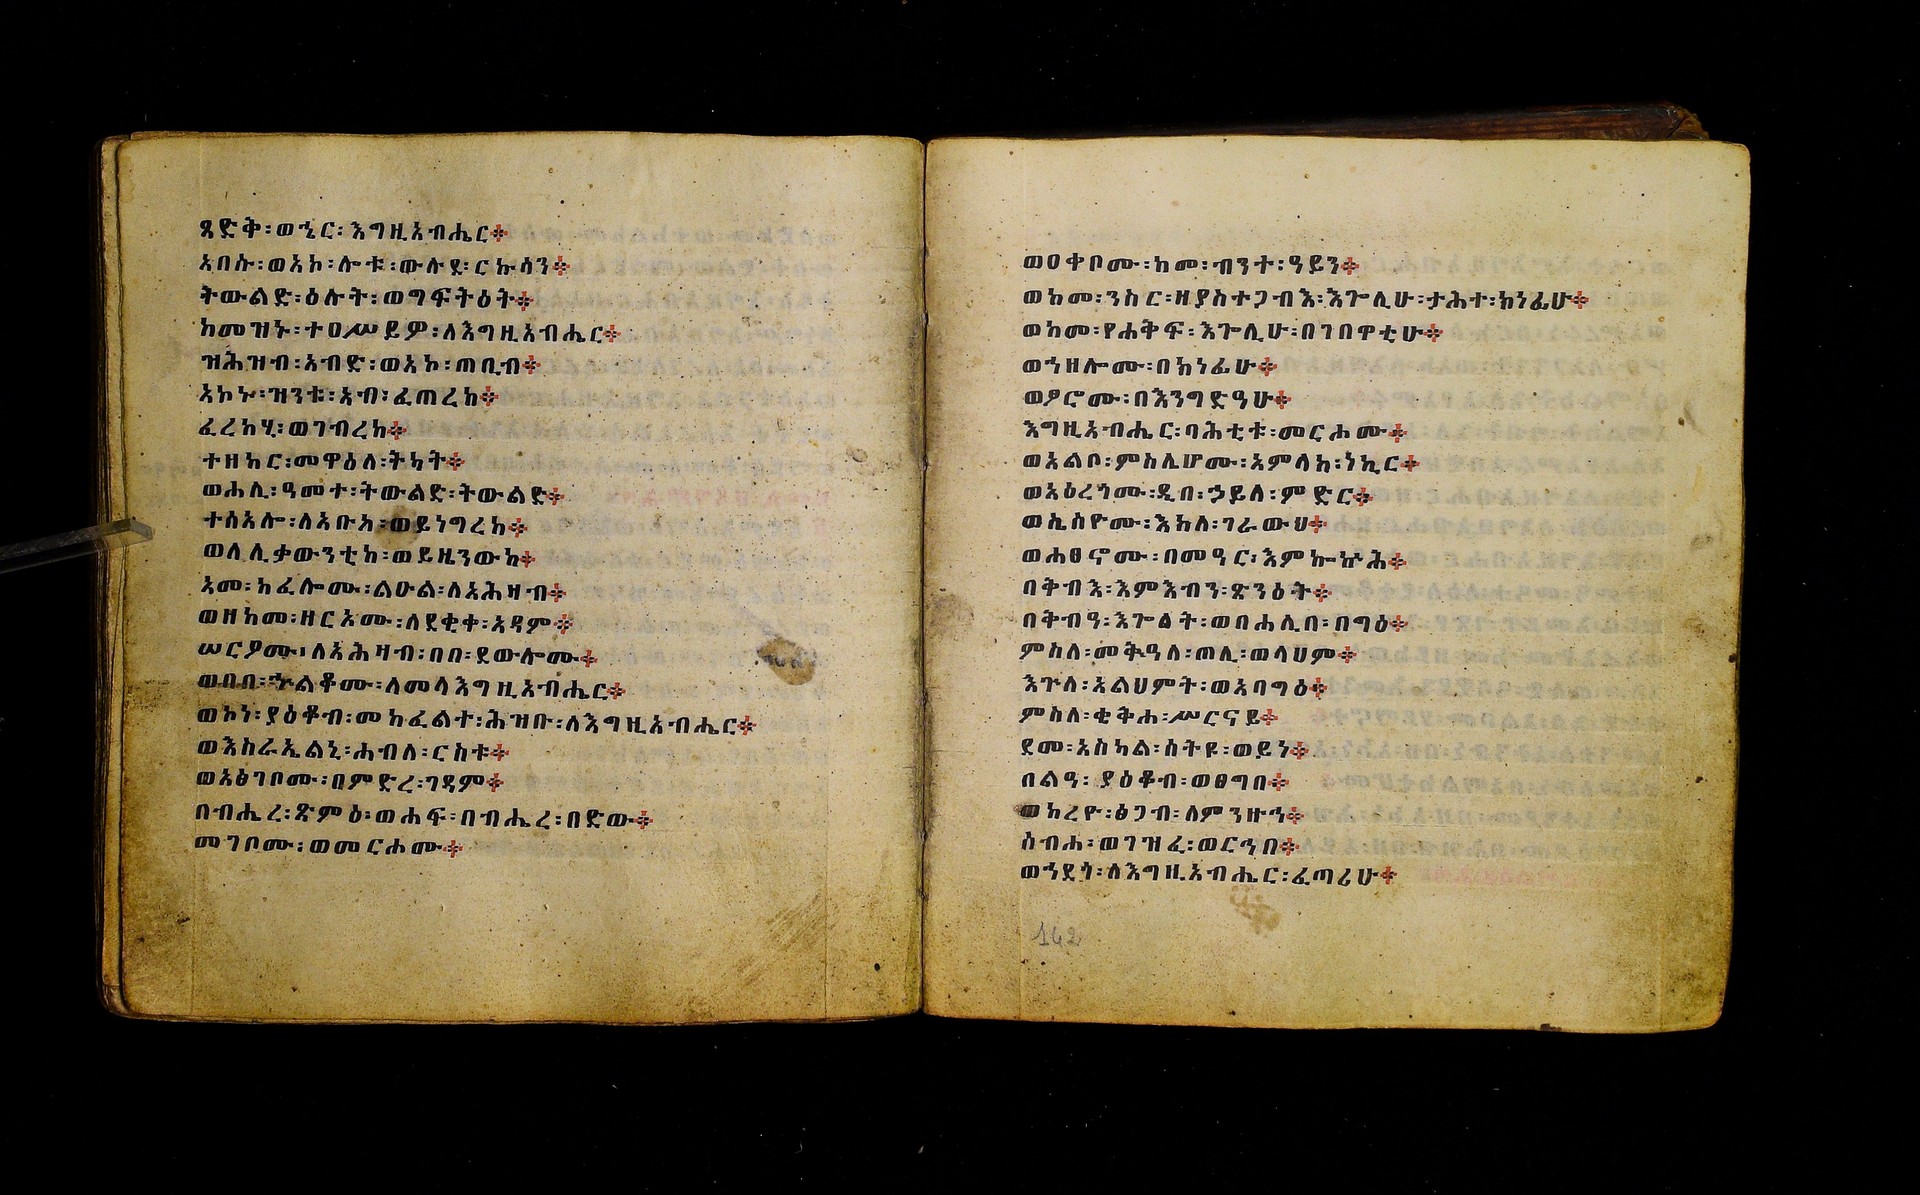 ጻድቅ፡ወኄር፡እግዚአብሔር፨
አበሱ፡ወአኮ፡ሎቱ፡ውሉደ፡ርኩሳን፨
ትውልድ፡ዕሉት፡ወግፍትዕት፨
ከመዝኑ፡ተዐሥይዎ፡ለእግዚአብሔር፨
ዝሕዝብ፡አብድ፡ወአኮ፡ጠቢብ፨
አኮኑ፡ዝንቱ፡አብ፡ፈጠረከ፨
ፈረከሂ፡ወገብረከ፨
ተዘከር፡መዋዕለ፡ትካት፨
ወሐሊ፡ዓመተ፡ትውልድ፡ትውልድ፨
ተሰአሎ፡ለአቡአ፡ወይነግረከ፨
ወለሊቃውንቲከ፡ወይዜንውከ፨
አመ፡ከፈሎሙ፡ልዑል፡ለአሕዛብ፨
ወዘከመ፡ዘርአሙ፡ለደቂቀ፡አዳም፨
ሠርዖሙ፡ለአሕዛብ፡በበ፡ደውሎሙ፨
ወበበ፡ኍልቆሙ፡ለመላእግዚአብሔር፨
ወኮነ፡ያዕቆብ፡መከፈልተ፡ሕዝቡ፡ለእግዚአብሔር፨
ወእስራኤልኒ፡ሐብለ፡ርስቱ፨
ወአፅገቦሙ፡በምድረ፡ገዳም፨
በብሔረ፡ጽምዕ፡ወሐፍ፡በብሔረ፡በድው፨
መገቦሙ፡ወመርሐሙ፨
ወዐቀቦሙ፡ከመ፡ብንተ፡ዓይን፨
ወከመ፡ንስር፡ዘያስተጋብእ፡እጐሊሁ፡ታሕተ፡ክነፊሁ፨
ወከመ፡የሐቅፍ፡እጐሊሁ፡በገበዋቲሁ፨
ወኀዘሎሙ፡በክነፊሁ፨
ወፆሮሙ፡በእንግድዓሁ፨
እግዚአብሔር፡ባሕቲቱ፡መርሐሙ፨
ወአልቦ፡ምስሌሆሙ፡አምላክ፡ነኪር፨
ወአዕረጎሙ፡ዲበ፡ኃይለ፡ምድር፨
ወሴስዮሙ፡እክለ፡ገራውህ፨
ወሐፀኖሙ፡በመዓር፡እምኰኵሕ፨
በቅብእ፡እምእብን፡ጽንዕት፨
በቅብዓ፡እጐልት፡ወበሐሊበ፡በግዕ፨
ምስለ፡መቅዓለ፡ጠሊ፡ወላህም፨
እጐለ፡አልህምት፡ወአባግዕ፨
ምስለ፡ቂቅሐ፡ሥርናይ፨
ደመ፡አስካል፡ሰትዩ፡ወይነ፨
በልዓ፡ያዕቆብ፡ወፀግበ፨
ወከረዮ፡ፅጋብ፡ለምንዙኅ፨
ሰብሐ፡ወገዝፈ፡ወርኅበ፨
ወኀደጎ፡ለእግዚአብሔር፡ፈጣሪሁ፨
142